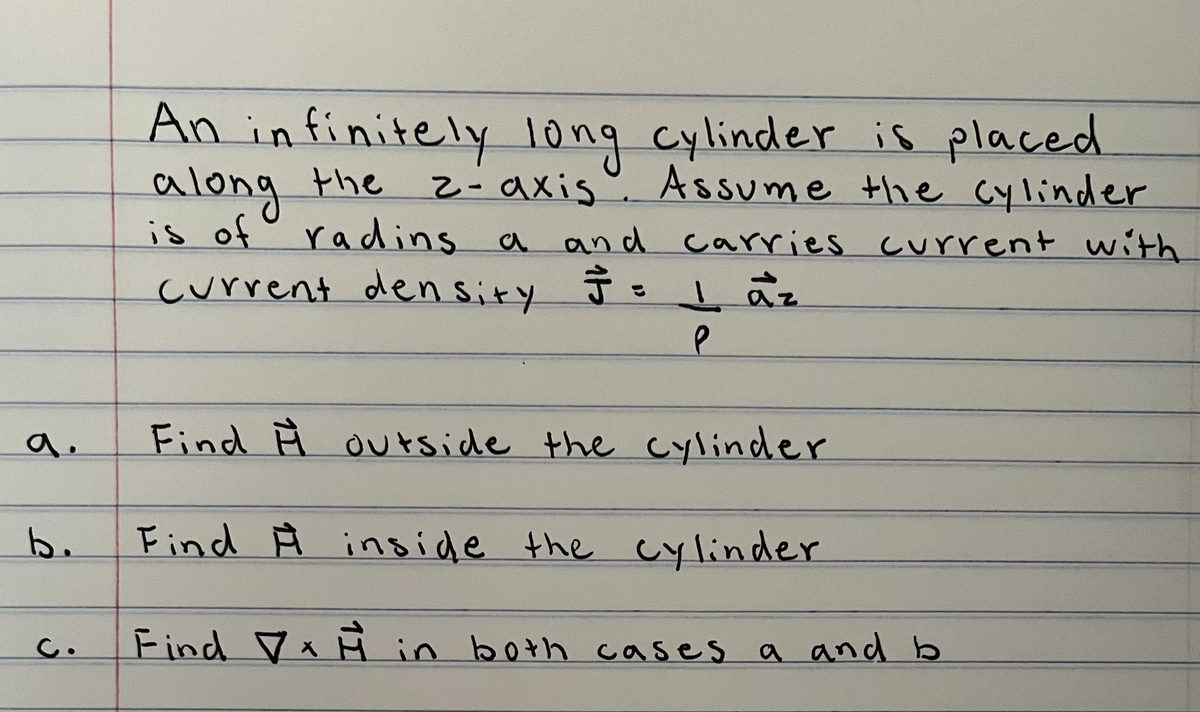 An infinitely long cylinder is placed
along the z-axis. Assume the cylinder
is of radins a and carries current with
current density J⃗ = 1/ρ a⃗z
a. Find H⃗ outside the cylinder
b. Find H⃗ inside the cylinder
c. Find ∇ x H⃗ in both cases a and b